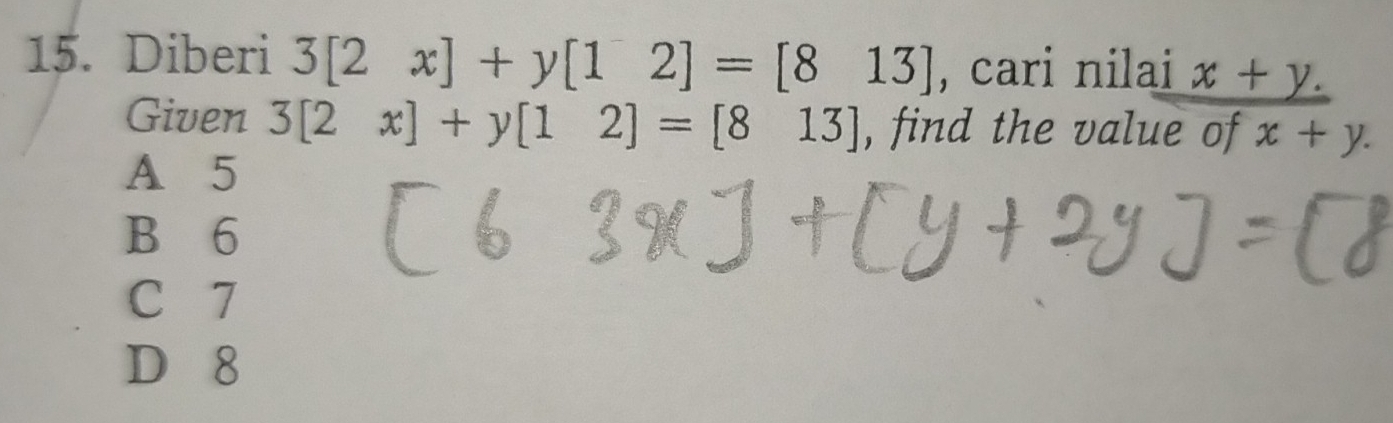 15. Diberi 3[2 x] + y[1 2] = [8 13], cari nilai x + y.
Given 3[2 x] + y[1 2] = [8 13], find the value of x + y.
A 5
[6 3x] + [y + 2y] = [8
B 6
C 7
D 8